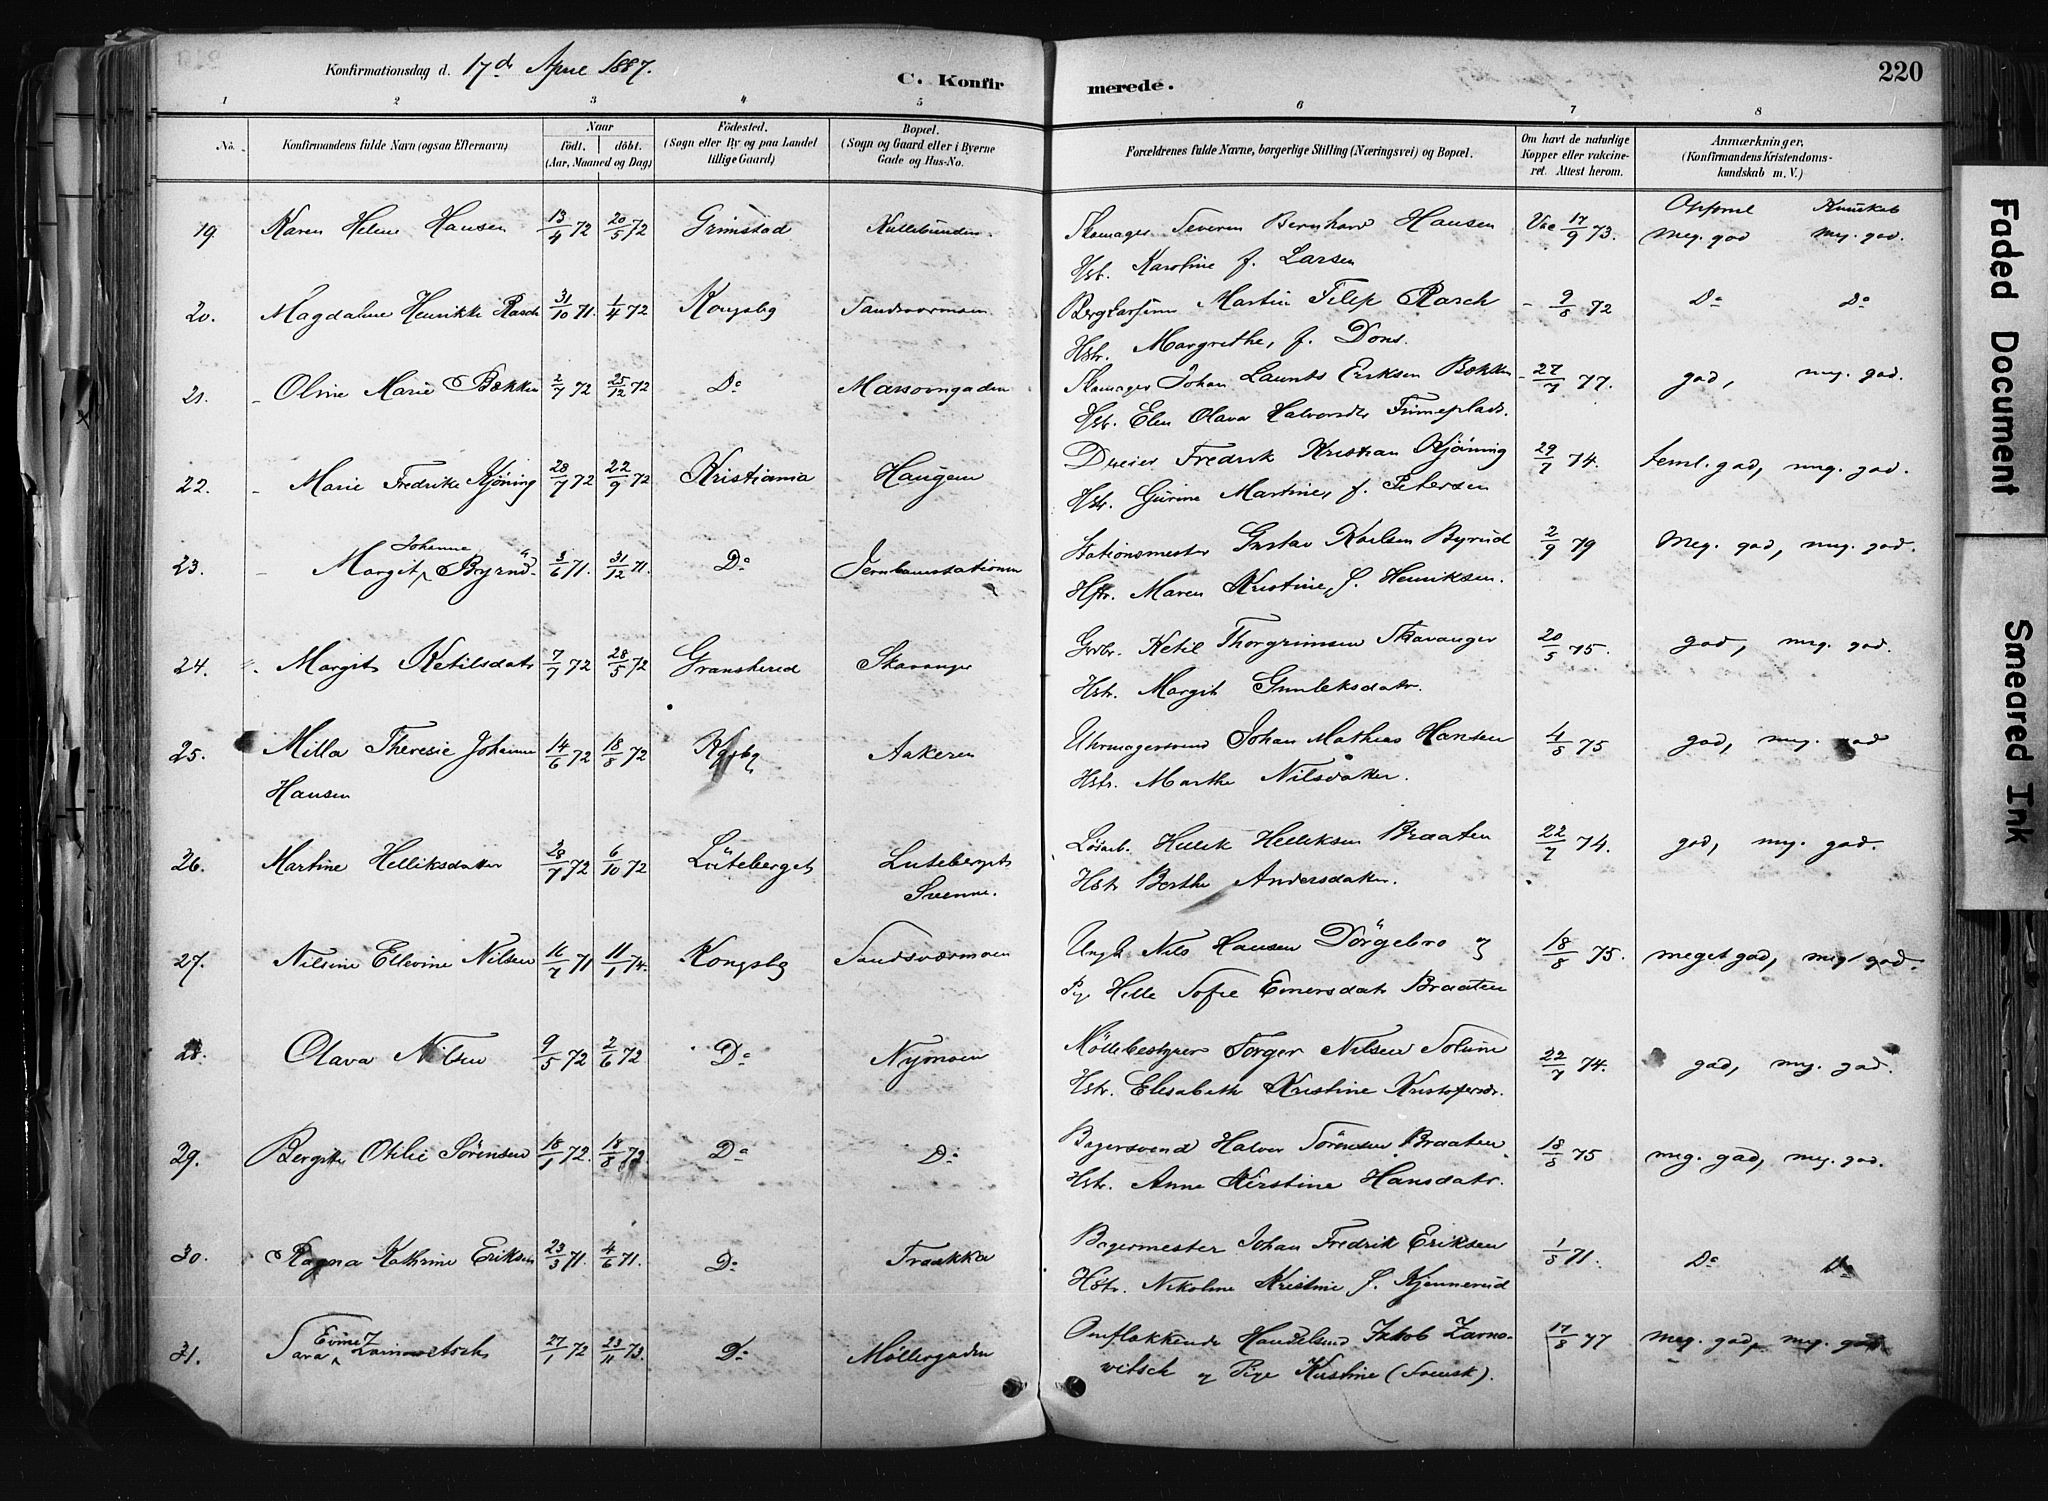 Konfirmationsdag d. 17de April 1887.
C. Konfirmerede.
220
1 2 3 4 5 6 7 8
No.
Konfirmandens fulde Navn (ogsaa Efternavn)
Naar født. døbt. (Aar, Maaned og Dag)
Fødested. (Sogn eller By og paa Landet tillige Gaard)
Bopæl. (Sogn og Gaard eller i Byerne Gade og Hus-No.
Forældrenes fulde Navne, borgerlige Stilling (Næringsvei) og Bopæl.
Om havt de naturlige Kopper eller vakcineret. Attest herom.
Anmærkninger. (Konfirmandens Kristendomskundskab m. V.)
19. Karen Helene Hansen 13/4 72 20/5 72 Grimstad Skomager Severin Bernhard Hansen Vac 17/9 73. Meg. god meg. god.
Hstr. Karoline f. Larsen
20. Magdalene Henrikke Rasch 31/10 71. 1/4 72 Kongsbg Sandsværmoen Martin Filip Rasch - 9/8 72 Do Do
Hstr. Margrethe, f. Dons.
21. - Oline Marie Bækken 2/7 72 25/12 72 Do Massovngaden Skomager Johan Eriksen Bækken - 27/7 77. god, meg. god.
Hstr. Elen Olava Halvorsdtr
22. - Marie Fredrike Kjöning 28/7 72 22/9 72 Kristiania Haugen Dreier Fredrik Kristian Kjöning 29/7 74. teml. god, meg. god.
Hstr. Gurine Martine, f. Petersen
23. - Margit Johanne Byrud 3/6 71. 31/12 71. Do Jernbanestationen Stationsmester Gustav Karlsen Byrud 2/9 79 Meg. god, meg. god.
Hstr. Maren Kristine, f. Henriksen.
24. - Margit Ketilsdatr 7/7 72 28/5 72 Gransherred Skavanger Grbr. Ketil Thorgrimsen Skavanger 20/5 75. god, meg. god.
Hstr. Margit Gunleksdatr.
25. Milla Theresie Johanne 14/6 72 18/8 72 Kgsbg Aakeren Uhrmagersvend Johan Mathias Hansen 4/8 75 god, meg. god
Hansen Hstr. Marthe Nilsdatter.
26. Martine Helliksdatter 6/10 72 Luteberget Luteberget Løsarb. Hellek Helleksen Braaten 22/7 74. god, meg. god.
Svenne. Hstr Berthe Andersdatter.
27. Nilsine Ellevine Nilsen 16/7 71 11/1 74. Kongsbg Sandsværmoen Ungk Nils Hansen Dörgebro og 18/8 75. meget god, meg. god.
Pge Helle Sofie Emersdatr Braaten
28. Olava Nilsen 9/5 72 2/6 72 Do Nymoen Möllebestyrer Torger Nilsen Solum 22/7 74. god, meg. god.
Hstr. Elisabeth Kristine Kristofersdr.
29. Bergith Otilie Sörensen 18/1 72. 18/8 72 Do Do Bagersvend Halvor Sörensen Braaten 18/8 75 meg. god, meg. god.
Hstr. Anne Kirstine Hansdatr.
30. Ragna Kathrine Eriksen 23/3 71. 4/6 71. Do Traakka Bagermester Johan Fredrik Eriksen 1/8 71. Do Do
Hstr. Nikoline Kristine f. Kjennerud
31. Sara Emmez Zarnowetsch 27/1 72 23/11 73. Do Møllergaden Omflakkende Handelsmd Jakob Zarno- 17/8 77 meg. god, meg. god
witsch og Pige Kirstine (Svensk).
Faded Document
Smeared Ink